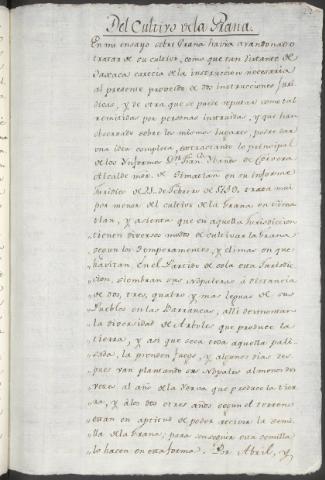 Del Cultivo dela Grana.
En mi ensayo sobre Grana havia abandonado
tratar de su cultivo, como que tan distante de
Oaxaca carecia de la instruccion necesaria
al presente proveido de dos instrucciones Juri
dicas, y de otra que se puede reputar como tal
remitidas por personas instruidas, y que han
observado sobre los mismos lugares, puedo dar
una idea completa, extractando lo principal
de los Informes. Dn. Fran.co de Rivera
Alcalde mor. de Zimatlan en su Informe
Juridico de 21 de Febrero de 1730, trata mui
por menor del cultivo de la Grana en Zima
tlan, y asienta que en aquella Jurisdiccion
tienen diversos modos de cultivar la Grana
segun los temperamentos, y climas en que
havitan. En el Partido de Sola esta Jurisdic
cion, siembran sus Nopaleras à distancia
de dos, tres, quatro y mas leguas de sus
Pueblos en las Barrancas, alli desmontan
la diversidad de Arboles que produce la
tierra, y asi que seca toda aquella pali
zada, la prenden fuego, y algunos dias des
pues van plantando sus Nopales al menos dos
veces al año de la Yerva que produce la tier
ra, y à los dos ò tres años segun el terreno
estan en aptitud de poder recivir la semi
lla dela Grana; para conseguir esta semilla
lo hacen en esta forma. Por Abril, y